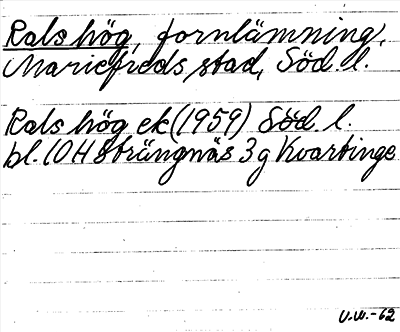 Rals hög, fornlämning,
Mariefreds stad, Söd. l.
Rals hög ek (1959) Söd. l.
bl. 10H Strängnäs 3g Kvartinge
V.W.-62